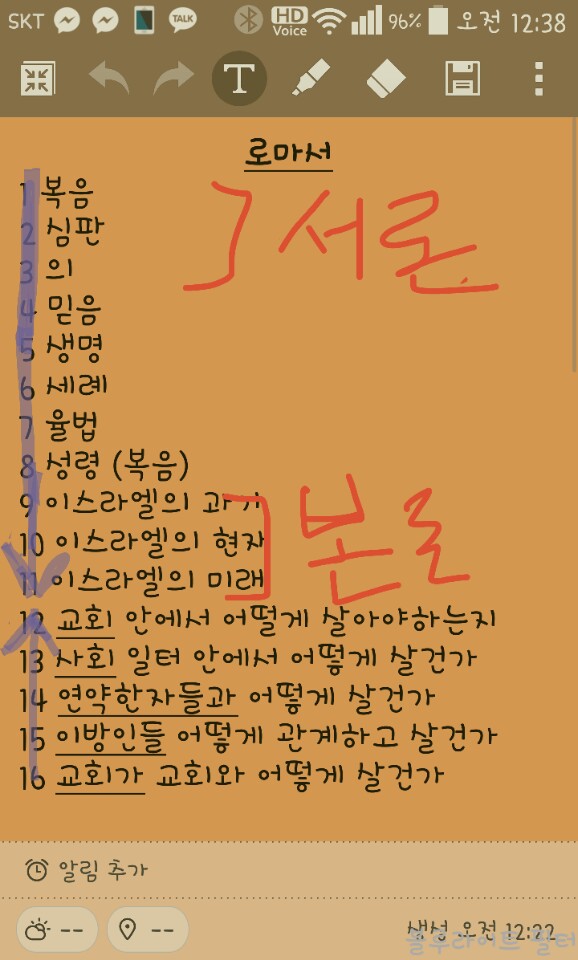 SKT TALK HD Voice 96% 오전 12:38
T
로마서
1 복음
2 심판
] 서론
3 의
4 믿음
5 생명
6 세례
7 율법
8 성령 (복음)
9 이스라엘의 과거
10 이스라엘의 현재
] 본론
11 이스라엘의 미래
12 교회 안에서 어떻게 살아야하는지
13 사회 일터 안에서 어떻게 살건가
14 연약한자들과 어떻게 살건가
15 이방인들 어떻게 관계하고 살건가
16 교회가 교회와 어떻게 살건가
알림 추가
-- --
생성 오전 12:22
블루라이트 필터